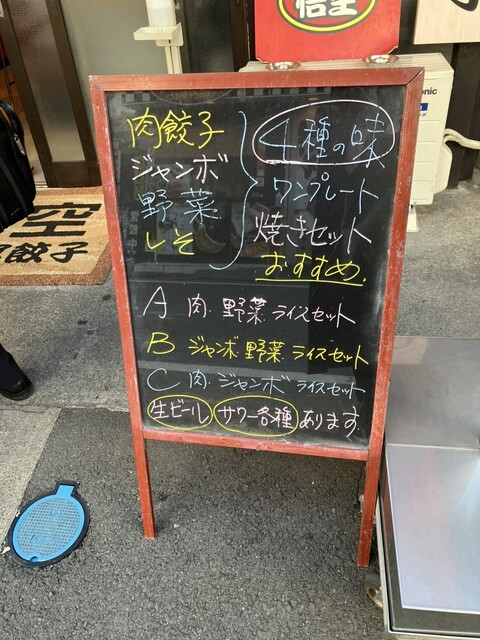 悟空
肉餃子
ジャンボ
野菜
しそ
4種の味
ワンプレート
焼きセット
おすすめ.
A 肉. 野菜. ライスセット
B ジャンボ. 野菜. ライスセット
C 肉. ジャンボ ライスセット
生ビール サワー各種 あります.
空
餃子